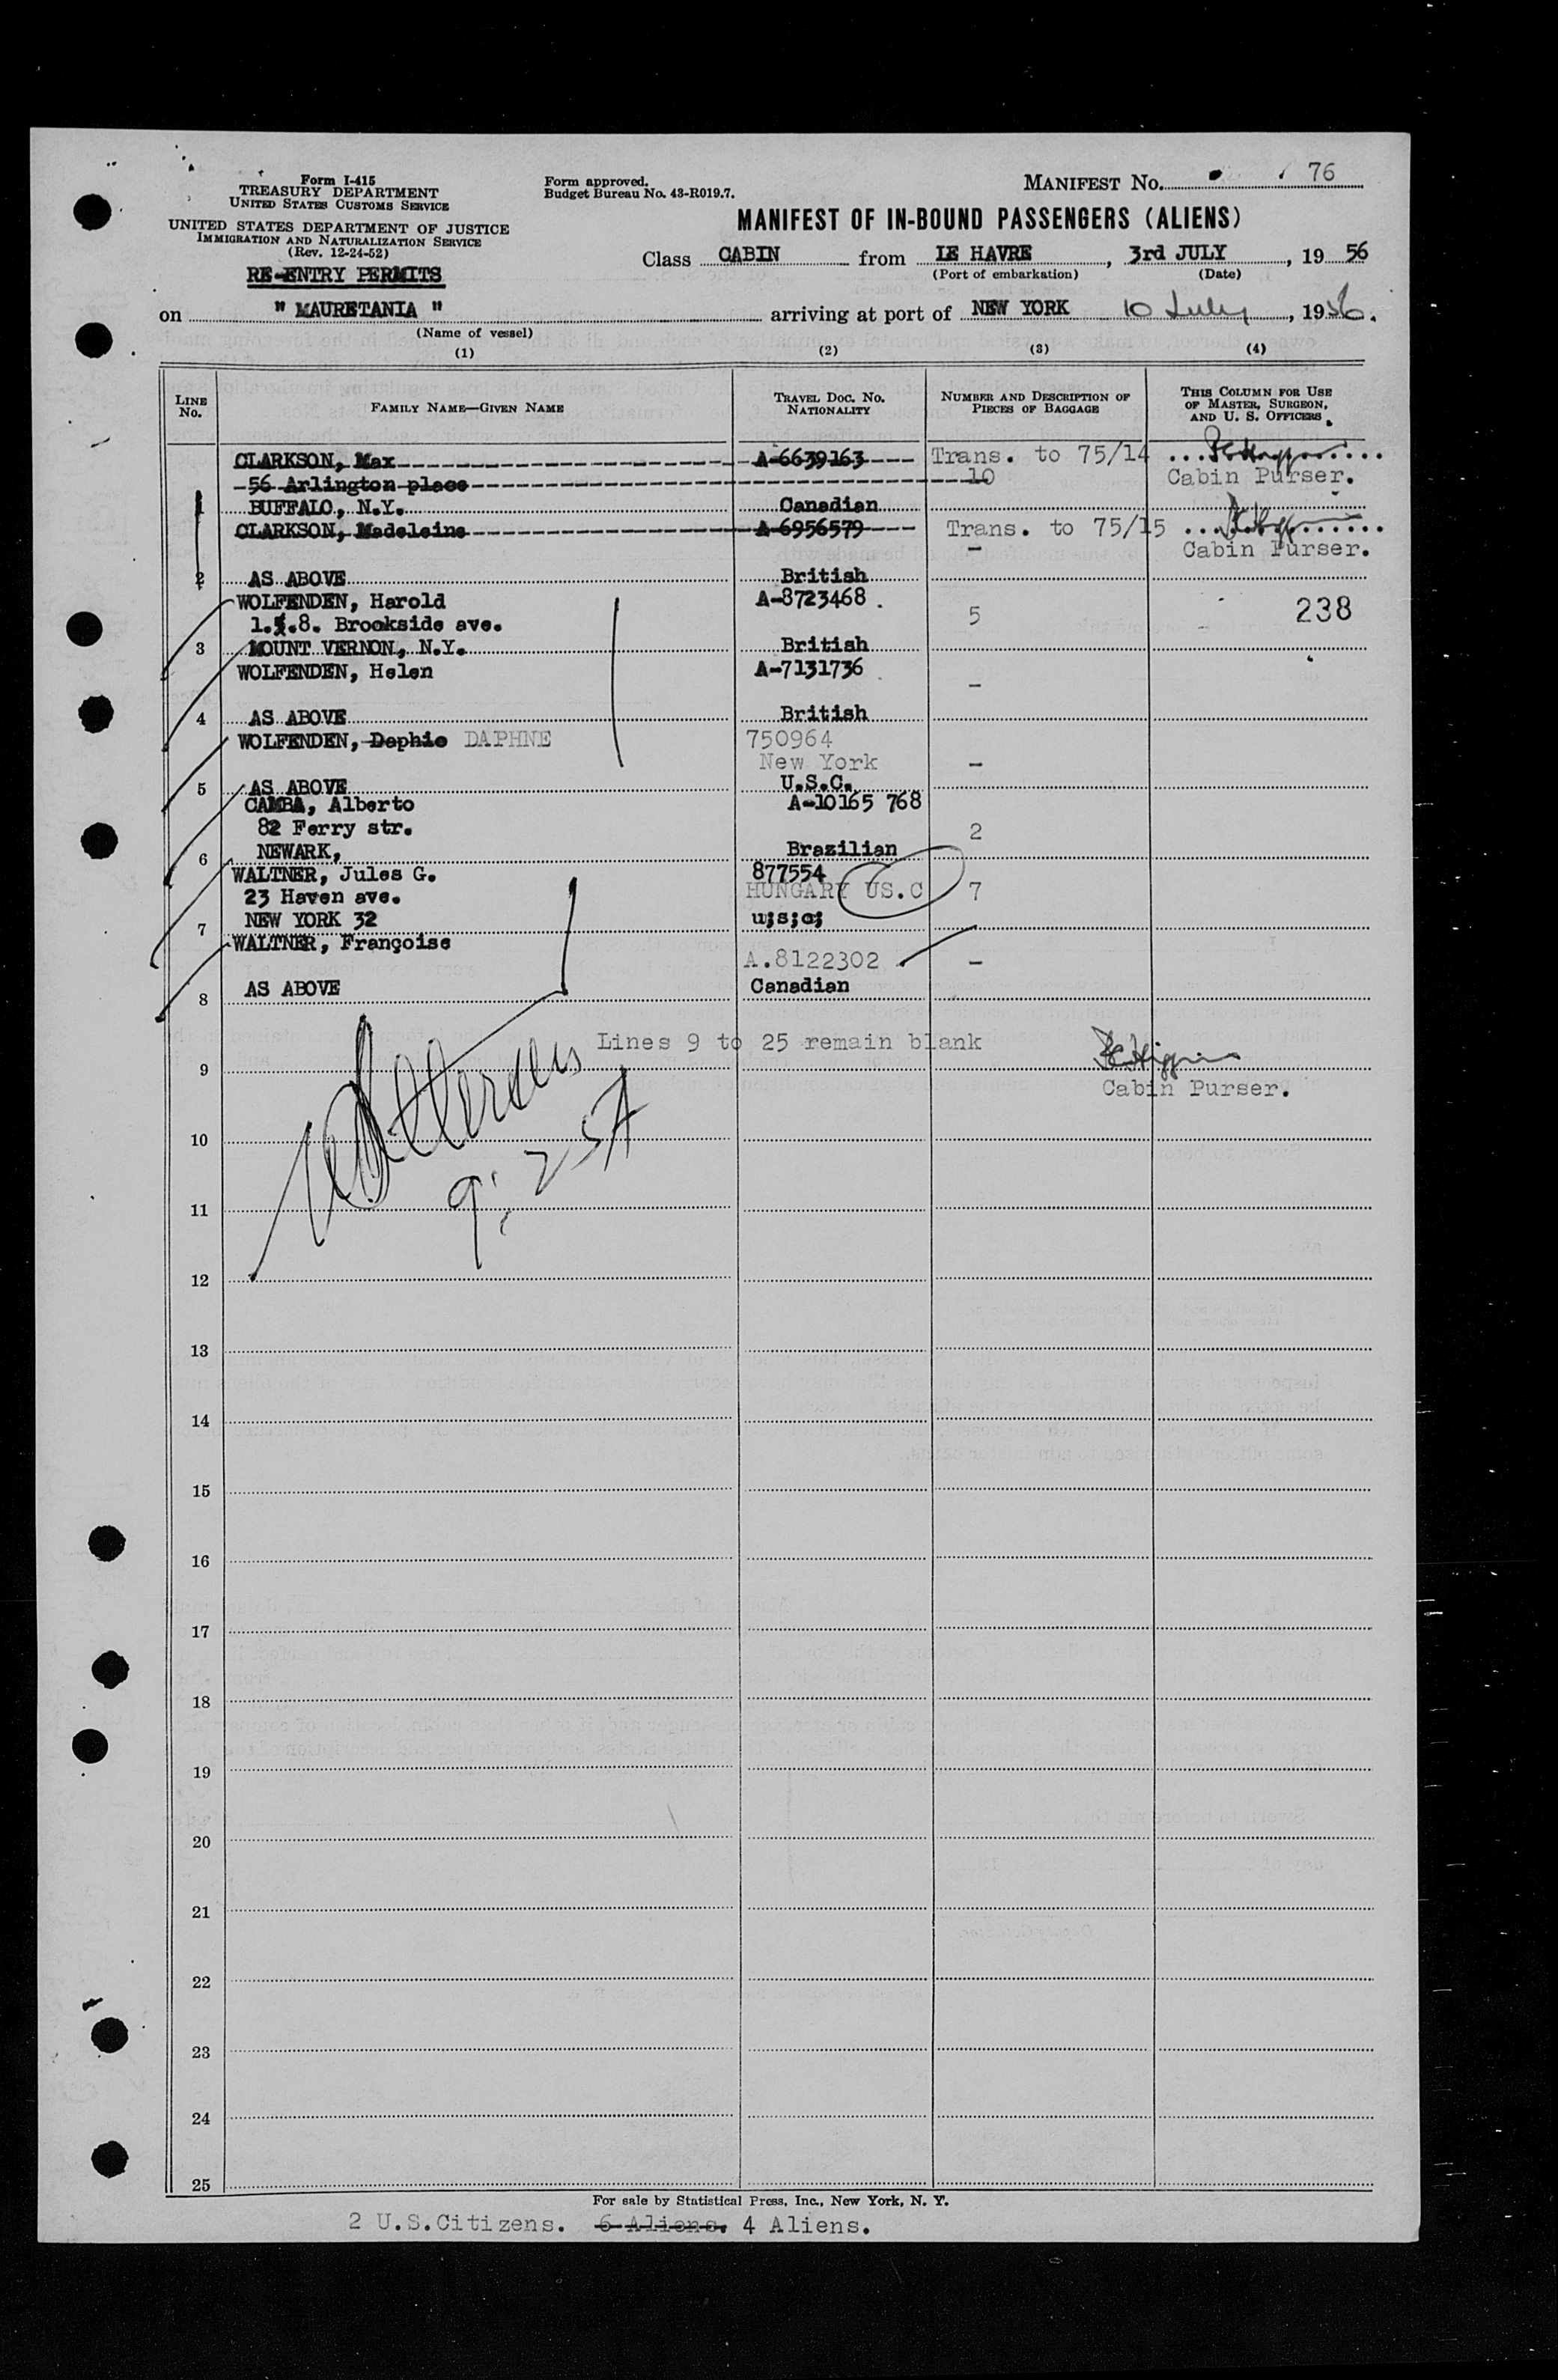 Form I-415
TREASURY DEPARTMENT
UNITED STATES CUSTOMS SERVICE
UNITED STATES DEPARTMENT OF JUSTICE
IMMIGRATION AND NATURALIZATION SERVICE
(Rev. 12-24-52)
RE-ENTRY PERMITS
Form approved.
Budget Bureau No. 43-R019.7.
MANIFEST NO. 76
MANIFEST OF IN-BOUND PASSENGERS (ALIENS)
Class CABIN from LE HAVRE, 3rd JULY, 1956
(Port of embarkation) (Date)
on " MAURETANIA " arriving at port of NEW YORK 10 July, 1956.
(Name of vessel)
(1) (2) (3) (4)
LINE No. FAMILY NAME—GIVEN NAME TRAVEL DOC. NO. NATIONALITY NUMBER AND DESCRIPTION OF PIECES OF BAGGAGE THIS COLUMN FOR USE OF MASTER, SURGEON, AND U. S. OFFICERS
CLARKSON, Max A-6639163 Trans. to 75/14
56 Arlington place 10 Cabin Purser.
1 BUFFALO, N.Y. Canadian
CLARKSON, Madeleine A-6956579 Trans. to 75/15
- Cabin Purser.
2 AS ABOVE British
WOLFENDEN, Harold A-8723468 5 238
1.5.8. Brookside ave.
3 MOUNT VERNON, N.Y. British
WOLFENDEN, Helen A-7131736 -
4 AS ABOVE British
WOLFENDEN, Dephie DAPHNE 750964
New York -
5 AS ABOVE U.S.C.
CAMBA, Alberto A-10165 768
82 Ferry str. 2
6 NEWARK, Brazilian
WALTNER, Jules G. 877554
23 Haven ave. HUNGARY US.C 7
7 NEW YORK 32 u;s;c;
WALTNER, Françoise
A.8122302 -
8 AS ABOVE Canadian
Lines 9 to 25 remain blank
9 Cabin Purser.
10
11
12
13
14
15
16
17
18
19
20
21
22
23
24
25
For sale by Statistical Press, Inc., New York, N. Y.
2 U.S.Citizens. 6 Aliens. 4 Aliens.